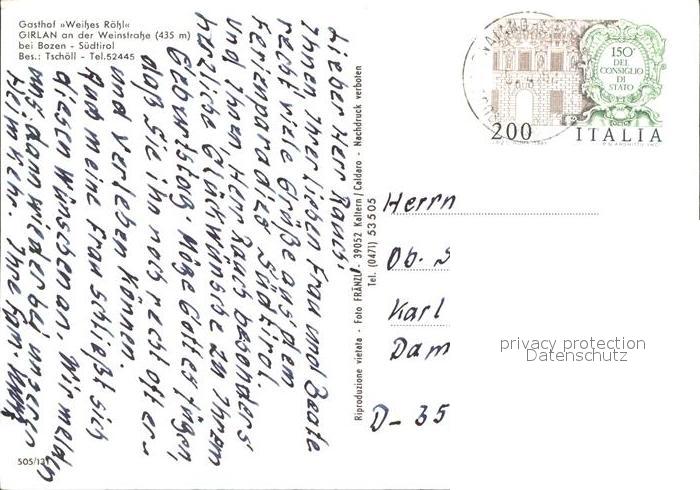 Gasthof »Weißes Rößl«
GIRLAN an der Weinstraße (435 m)
bei Bozen - Südtirol
Bes.: Tschöll - Tel.52445
Lieber Herr Rauch!
Ihnen, Ihrer lieben Frau und Beate
recht viele Grüße aus dem
Ferienparadies Südtirol.
und Ihnen Herr Rauch besonders
herzliche Glückwünsche zu Ihrem
Geburtstag. Möge Gottes fügen,
daß Sie ihn noch recht oft er-
und verleben können.
Auch meine Frau schließt sich
diesen Wünschen an. Wir melden
uns dann wieder bei unserer
Heimkehr. Ihre Fam.
505/131
Riproduzione vietata - Foto FRÄNZL - 39052 Kaltern/Caldaro - Nachdruck verboten
Tel. (0471) 53505
150°
DEL
CONSIGLIO
DI
STATO
200 ITALIA
Herrn
Ob. S
Karl
Dam
D-35
privacy protection
Datenschutz